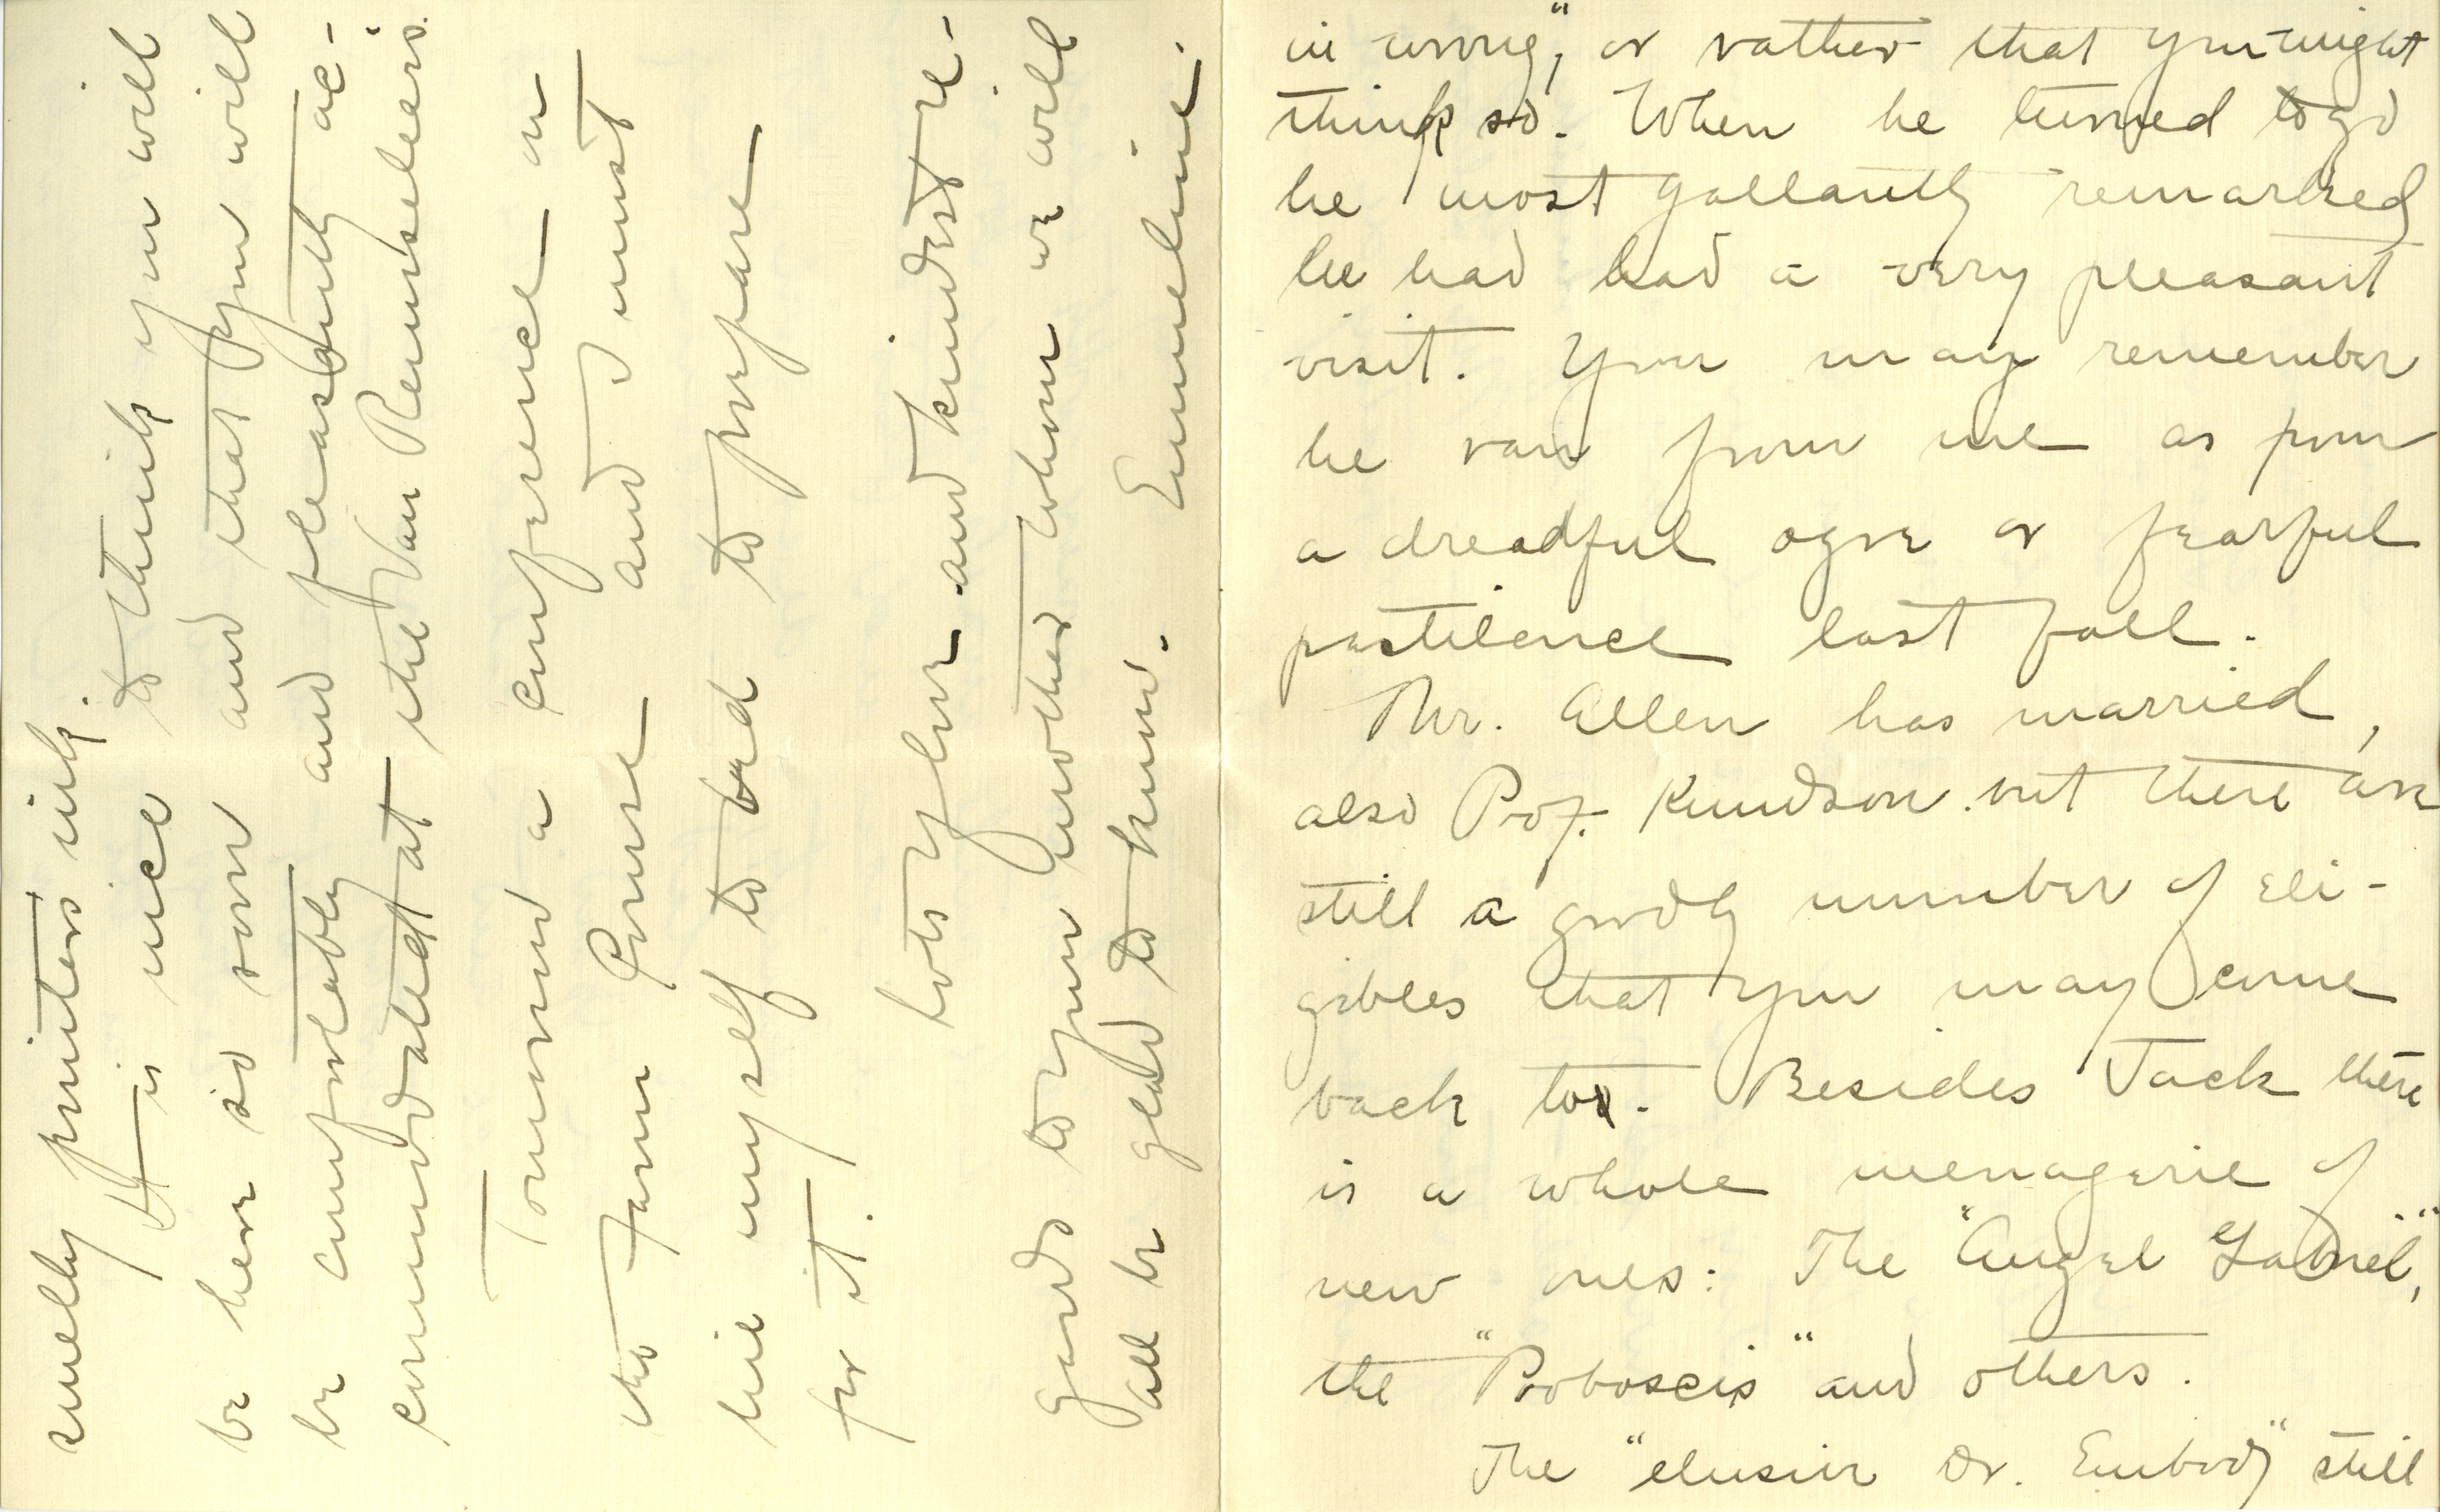 in wrong", or rather that you might
think so. When he turned to go
he most gallantly remarked
he had had a very pleasant
visit. You may remember
he ran from me as from
a dreadful ogre or fearful
pestilence last fall.
Mr. Allen has married,
also Prof. Knudson but there are
still a goodly number of eli-
gibles that you may come
back to. Besides Jack there
is a whole menagerie of
new ones: The "Angel Gabriel",
the "Proboscis" and others.
The "elusive Dr. Embody" still
smelly printers ink.
It is nice to think you will
be here so soon and that you will
be comfortably and pleasantly ac-
commodated at the Van Rensselaers.
Tomorrow a conference on
the Farm and I must
hie myself to bed to prepare
for it.
Lots of love and kindest re-
gards to your mother whom we will
all be glad to know. Emmeline.